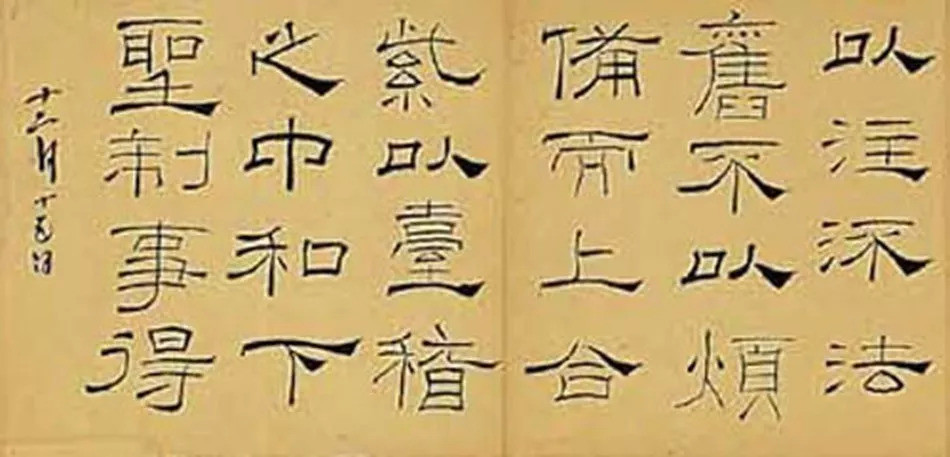 以注深法
舊不以煩
備而上合
紫以臺稽
之中和下
聖制事得
十二月十五日